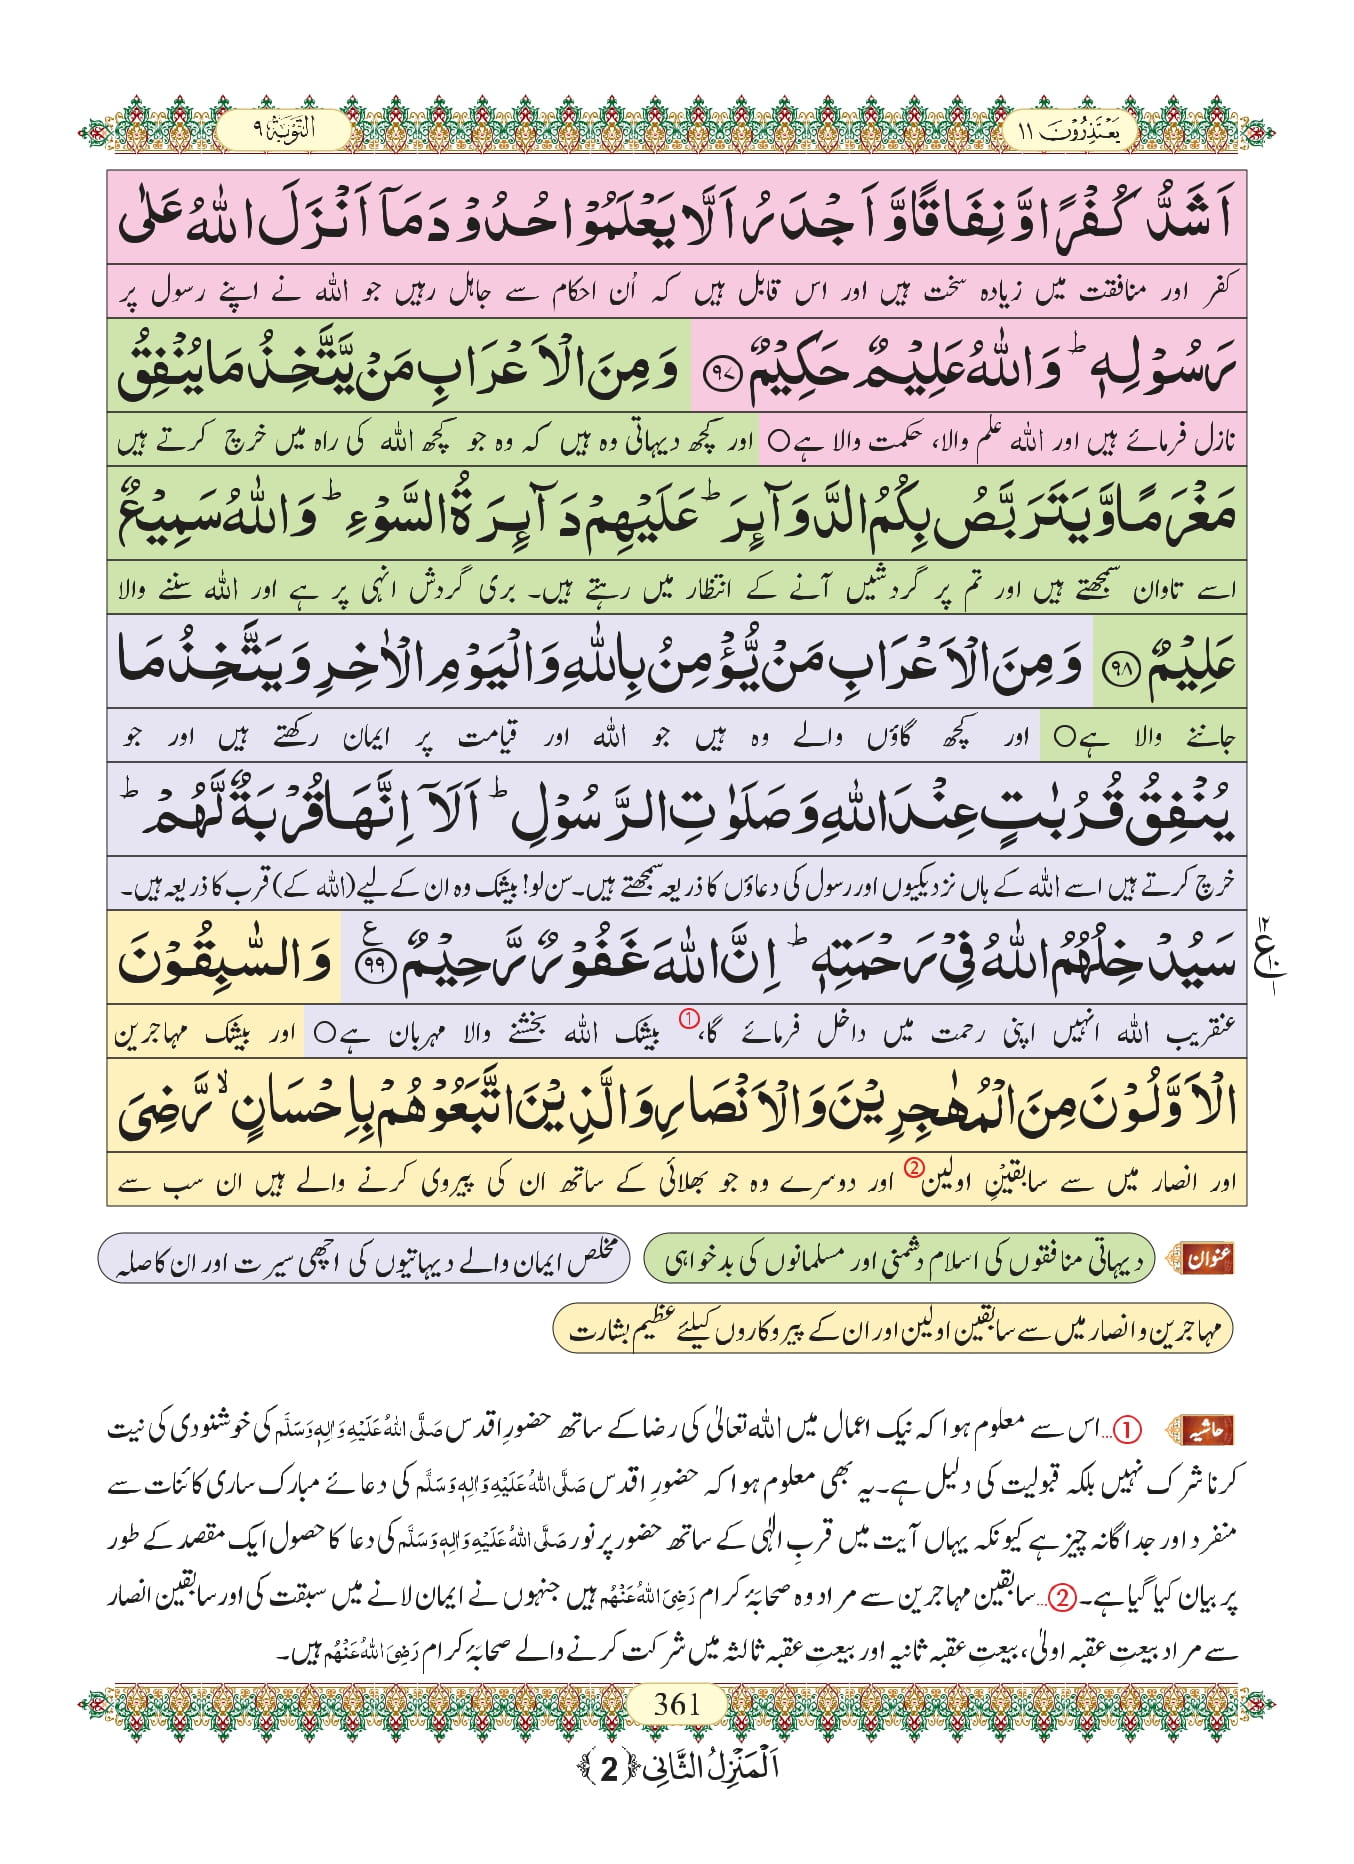 یَعْتَذِرُوْنَ ۱۱
اَلتَّوْبَۃ ۹
اَشَدُّ كُفْرًا وَّ نِفَاقًا وَّ اَجْدَرُ اَلَّا یَعْلَمُوْا حُدُوْدَ مَاۤ اَنْزَلَ اللّٰهُ عَلٰى
کفر اور منافقت میں زیادہ سخت ہیں اور اس قابل ہیں کہ اُن احکام سے جاہل رہیں جو اللہ نے اپنے رسول پر
رَسُوْلِهٖؕ وَ اللّٰهُ عَلِیْمٌ حَكِیْمٌ ﴿۹۷﴾ وَ مِنَ الْاَعْرَابِ مَنْ یَّتَّخِذُ مَا یُنْفِقُ
نازل فرمائے ہیں اور اللہ علم والا، حکمت والا ہے○ اور کچھ دیہاتی وہ ہیں کہ وہ جو کچھ اللہ کی راہ میں خرچ کرتے ہیں
مَغْرَمًا وَّ یَتَرَبَّصُ بِكُمُ الدَّوَآىِٕرَؕ عَلَیْهِمْ دَآىِٕرَةُ السَّوْءِؕ وَ اللّٰهُ سَمِیْعٌ
اسے تاوان سمجھتے ہیں اور تم پر گردشیں آنے کے انتظار میں رہتے ہیں۔ بری گردش انہی پر ہے اور اللہ سننے والا
عَلِیْمٌ ﴿۹۸﴾ وَ مِنَ الْاَعْرَابِ مَنْ یُّؤْمِنُ بِاللّٰهِ وَ الْیَوْمِ الْاٰخِرِ وَ یَتَّخِذُ مَا
جاننے والا ہے○ اور کچھ گاؤں والے وہ ہیں جو اللہ اور قیامت پر ایمان رکھتے ہیں اور جو
یُنْفِقُ قُرُبٰتٍ عِنْدَ اللّٰهِ وَ صَلَوٰتِ الرَّسُوْلِؕ اَلَاۤ اِنَّهَا قُرْبَةٌ لَّهُمْؕ
خرچ کرتے ہیں اسے اللہ کے ہاں نزدیکیوں اور رسول کی دعاؤں کا ذریعہ سمجھتے ہیں۔ سن لو! بیشک وہ ان کے لیے (اللہ کے) قرب کا ذریعہ ہیں۔
سَیُدْخِلُهُمُ اللّٰهُ فِیْ رَحْمَتِهٖؕ اِنَّ اللّٰهَ غَفُوْرٌ رَّحِیْمٌ ﴿۹۹﴾ ع وَ السّٰبِقُوْنَ
۱۲ ع ۱۰ ۱
عنقریب اللہ انہیں اپنی رحمت میں داخل فرمائے گا،① بیشک اللہ بخشنے والا مہربان ہے○ اور بیشک مہاجرین
الْاَوَّلُوْنَ مِنَ الْمُهٰجِرِیْنَ وَ الْاَنْصَارِ وَ الَّذِیْنَ اتَّبَعُوْهُمْ بِاِحْسَانٍۙ رَّضِیَ
اور انصار میں سے سابقینِ اولین② اور دوسرے وہ جو بھلائی کے ساتھ ان کی پیروی کرنے والے ہیں ان سب سے
عنوان دیہاتی منافقوں کی اسلام دشمنی اور مسلمانوں کی بدخواہی مخلص ایمان والے دیہاتیوں کی اچھی سیرت اور ان کا صلہ
مہاجرین و انصار میں سے سابقین اولین اور ان کے پیروکاروں کیلئے عظیم بشارت
حاشیہ ①...اس سے معلوم ہوا کہ نیک اعمال میں اللہ تعالیٰ کی رضا کے ساتھ حضورِ اقدس صَلَّی اللہُ عَلَیْہِ وَاٰلِہٖ وَسَلَّم کی خوشنودی کی نیت
کرنا شرک نہیں بلکہ قبولیت کی دلیل ہے۔ یہ بھی معلوم ہوا کہ حضورِ اقدس صَلَّی اللہُ عَلَیْہِ وَاٰلِہٖ وَسَلَّم کی دعائے مبارک ساری کائنات سے
منفرد اور جداگانہ چیز ہے کیونکہ یہاں آیت میں قربِ الٰہی کے ساتھ حضور پر نور صَلَّی اللہُ عَلَیْہِ وَاٰلِہٖ وَسَلَّم کی دعا کا حصول ایک مقصد کے طور
پر بیان کیا گیا ہے۔ ②...سابقین مہاجرین سے مراد وہ صحابۂ کرام رَضِیَ اللہُ عَنْہُم ہیں جنہوں نے ایمان لانے میں سبقت کی اور سابقین انصار
سے مراد بیعتِ عقبہ اولیٰ، بیعتِ عقبہ ثانیہ اور بیعتِ عقبہ ثالثہ میں شرکت کرنے والے صحابۂ کرام رَضِیَ اللہُ عَنْہُم ہیں۔
361
اَلْمَنْزِلُ الثَّانِی ﴿2﴾